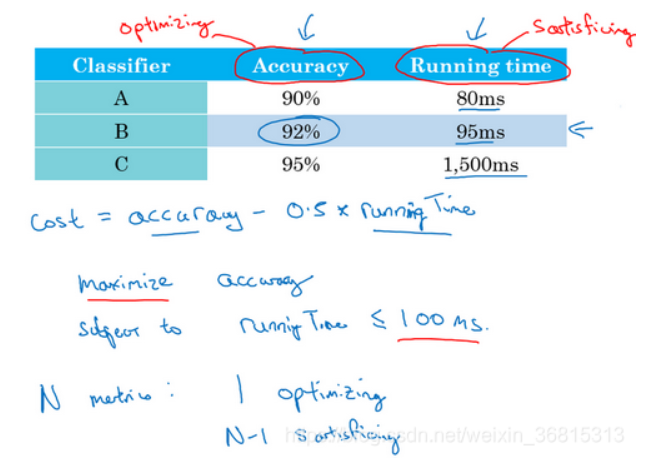 optimizing satisficing
Classifier Accuracy Running time
A 90% 80ms
B 92% 95ms
C 95% 1,500ms
cost = accuracy - 0.5 x running Time
maximize accuracy
subject to running Time ≤ 100 ms.
N metrics: 1 optimizing
N-1 satisficing
https://blog.csdn.net/weixin_36815313